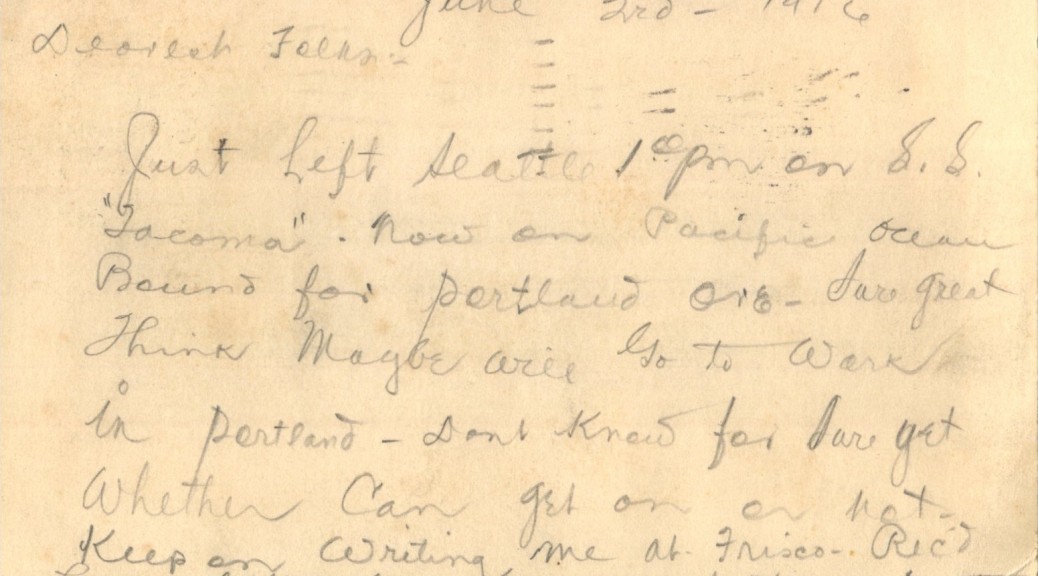 June 3rd - 1916
Dearest Folks:-
Just Left Seattle 1 00 pm on S.S.
"Tacoma". Now on Pacific Ocean
Bound for Portland Ore - Sure great
Think Maybe will Go to Work
in Portland - Dont Know for Sure yet
Whether Can get on or not -
Keep on Writing me at Frisco - Rec'd